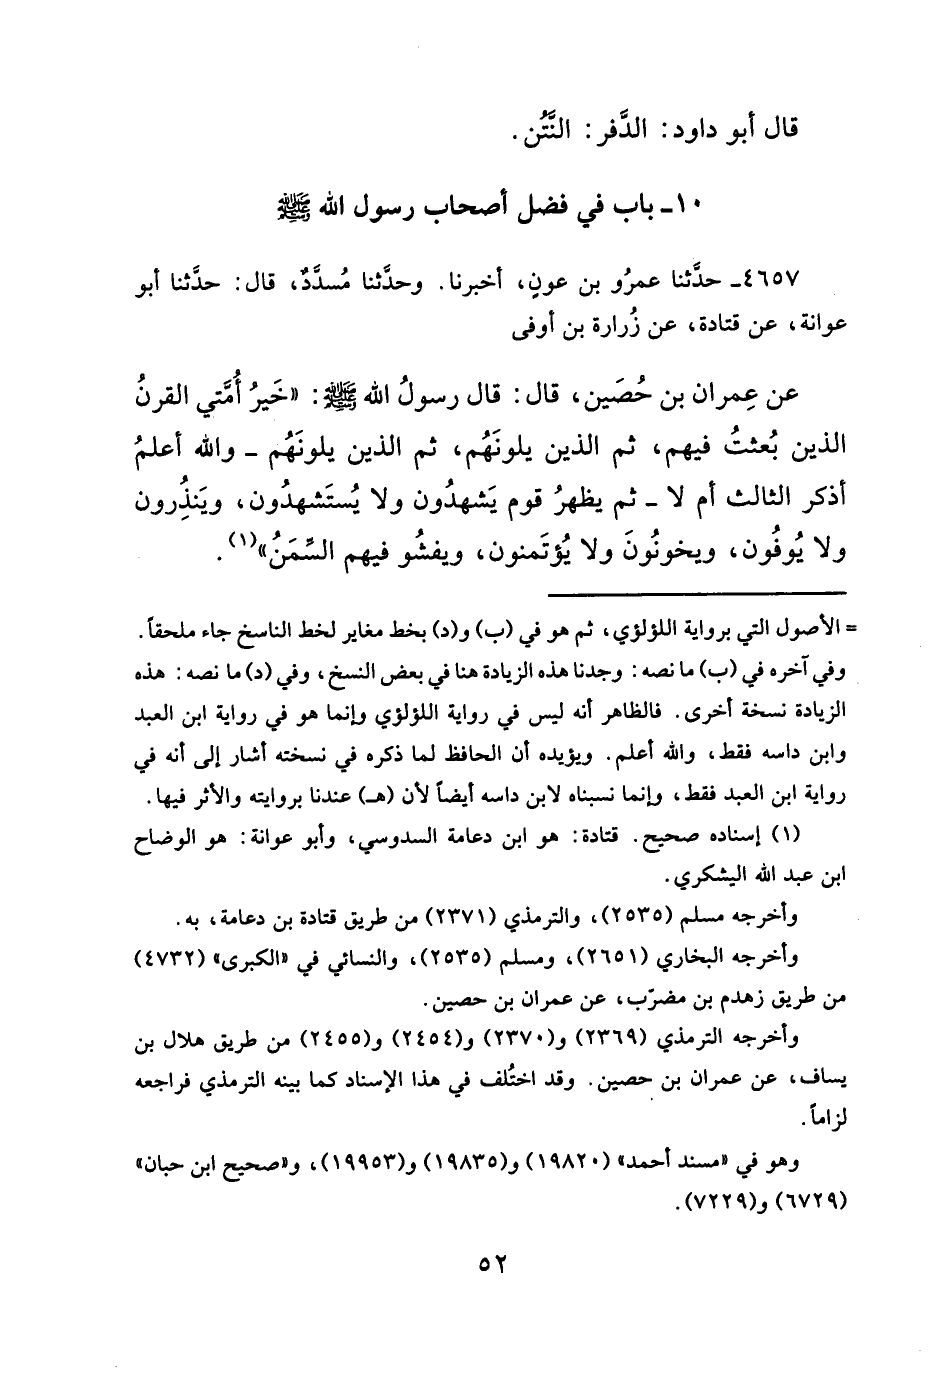 قال أبو داود: الدَّفر: النَّتْن.
١٠ـ باب في فضل أصحاب رسول الله ﷺ
٤٦٥٧ـ حدَّثنا عمرُو بن عونٍ، أخبرنا. وحدَّثنا مُسدَّدٌ، قال: حدَّثنا أبو
عوانة، عن قتادة، عن زُرارة بن أوفى
عن عِمران بن حُصَين، قال: قال رسولُ الله ﷺ: «خَيرُ أُمَّتي القرنُ
الذين بُعثتُ فيهم، ثم الذين يلونَهُم، ثم الذين يلونَهُم ـ والله أعلمُ
أذكر الثالث أم لا ـ ثم يظهرُ قوم يَشهدُون ولا يُستَشهدُون، ويَنذُِرون
ولا يُوفُون، ويخونُونَ ولا يُؤتَمنون، ويفشُو فيهم السِّمَنُ»(١).
= الأصول التي برواية اللؤلؤي، ثم هو في (ب) و(د) بخط مغاير لخط الناسخ جاء ملحقاً.
وفي آخره في (ب) ما نصه: وجدنا هذه الزيادة هنا في بعض النسخ، وفي (د) ما نصه: هذه
الزيادة نسخة أخرى. فالظاهر أنه ليس في رواية اللؤلؤي وإنما هو في رواية ابن العبد
وابن داسه فقط، والله أعلم. ويؤيده أن الحافظ لما ذكره في نسخته أشار إلى أنه في
رواية ابن العبد فقط، وإنما نسبناه لابن داسه أيضاً لأن (هـ) عندنا بروايته والأثر فيها.
(١) إسناده صحيح. قتادة: هو ابن دعامة السدوسي، وأبو عوانة: هو الوضاح
ابن عبد الله اليشكري.
وأخرجه مسلم (٢٥٣٥)، والترمذي (٢٣٧١) من طريق قتادة بن دعامة، به.
وأخرجه البخاري (٢٦٥١)، ومسلم (٢٥٣٥)، والنسائي في «الكبرى» (٤٧٣٢)
من طريق زهدم بن مضرّب، عن عمران بن حصين.
وأخرجه الترمذي (٢٣٦٩) و(٢٣٧٠) و(٢٤٥٤) و(٢٤٥٥) من طريق هلال بن
يساف، عن عمران بن حصين. وقد اختُلف في هذا الإسناد كما بينه الترمذي فراجعه
لزاماً.
وهو في «مسند أحمد» (١٩٨٢٠) و(١٩٨٣٥) و(١٩٩٥٣)، و«صحيح ابن حبان»
(٦٧٢٩) و(٧٢٢٩).
٥٢